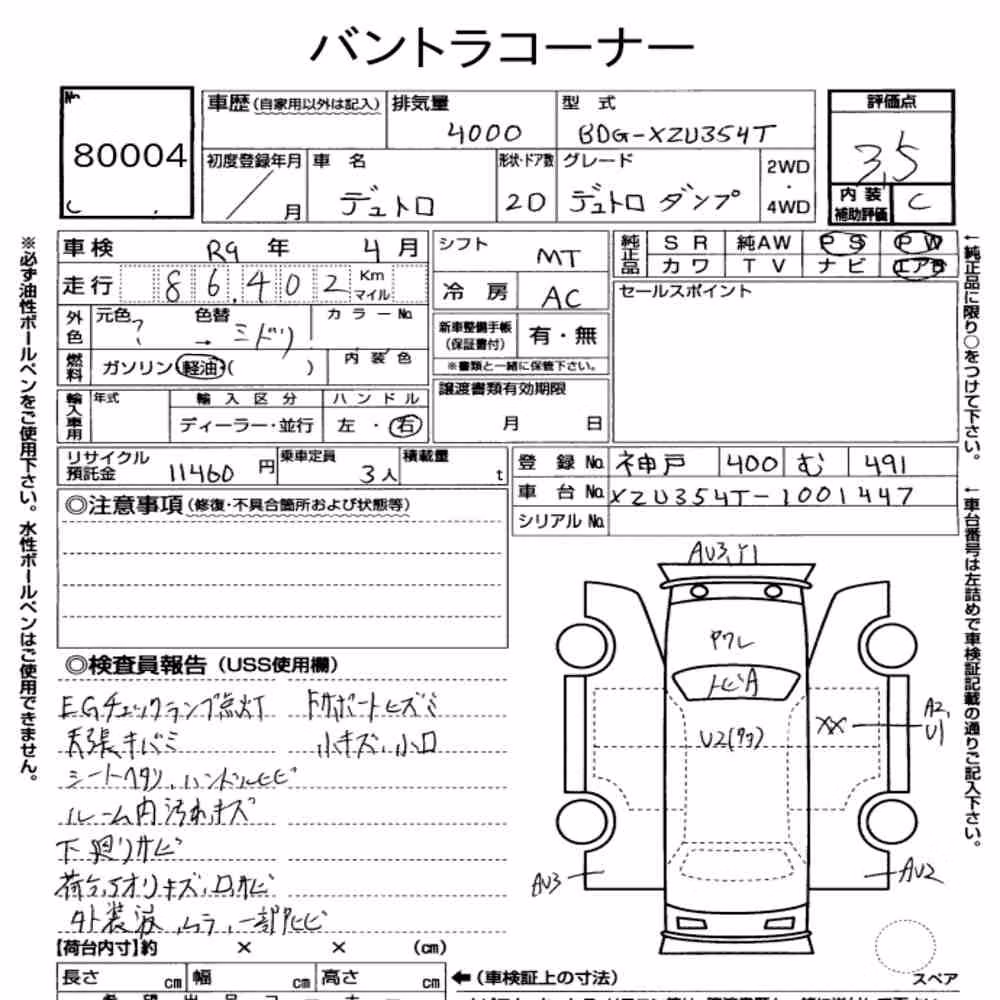 バントラコーナー
№
80004
車歴 (自家用以外は記入) 排気量 型式 評価点
4000 BDG-XZU354T 3,5
初度登録年月 車名 形状・ドア数 グレード 2WD ・ 4WD
/ 月 デュトロ 2D デュトロ ダンプ
内装補助評価 C
車検 R9年 4月
走行 86,402 Km マイル
外色 元色 ? 色替 → ミドリ カラーNo.
燃料 ガソリン 軽油 ( ) 内装色
輸入車用 年式 輸入区分 ハンドル
ディーラー・並行 左・右
シフト MT
冷房 AC
新車整備手帳 (保証書付) 有・無
※書類と一緒に保管下さい。
譲渡書類有効期限
月 日
純正品 SR 純AW PS PW
カワ TV ナビ エアB
セールスポイント
リサイクル預託金 11460円 乗車定員 3人 積載量 t
登録No. 神戸 400 む 491
車台No. XZU354T-1001447
シリアルNo.
◎注意事項 (修復・不具合箇所および状態等)
◎検査員報告 (USS使用欄)
EGチェックランプ点灯 ドアサポートヒズミ
天張キバミ 小キズ、小凹
シートヘタリ、ハンドルヒビ
ルーム内汚れキズ
下廻りサビ
荷台、アオリキズ、凹サビ
外装液、ムラ、一部ヒビ
AU3,Y1
ヤワレ
トビA
U2(タヨ)
XX
A2,
U1
AU3
AU2
【荷台内寸】約 × × (cm)
長さ cm 幅 cm 高さ cm ←(車検証上の寸法)
スペア
※必ず油性ボールペンをご使用下さい。水性ボールペンはご使用できません。
←純正品に限り○をつけて下さい。
←車台番号は左詰めで車検証記載の通りご記入下さい。